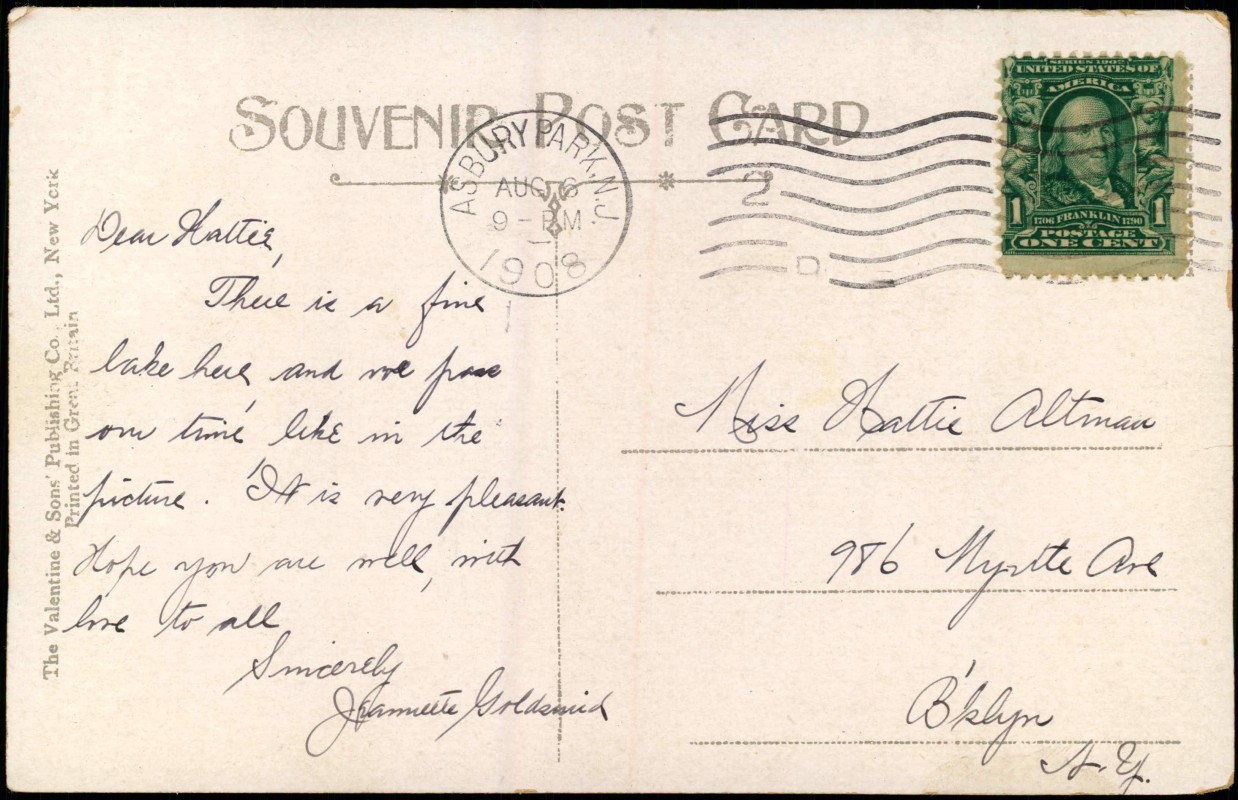 SOUVENIR POST CARD
ASBURY PARK, N.J.
AUG 6
9 - PM
1908
2
D
SERIES 1902
UNITED STATES OF
AMERICA
1 1706 FRANKLIN 1790 1
POSTAGE
ONE CENT
The Valentine & Sons' Publishing Co., Ltd., New York
Printed in Great Britain
Dear Hattie,
There is a fine
lake here, and we pass
our time like in the
picture. It is very pleasant.
Hope you are well, with
love to all
Sincerely
Jeannette Goldsmid
Miss Hattie Altman
986 Myrtle Ave
B'klyn
N.Y.